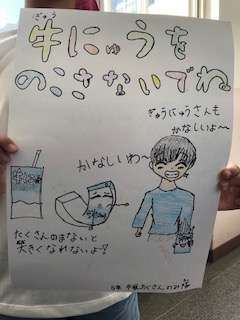 牛にゅうを
ぎゅう
のこさないでね
ぎゅうにゅうさんも
かなしいよ〜
かなしいわ〜
たくさんのまないと
大きくなれないよ?